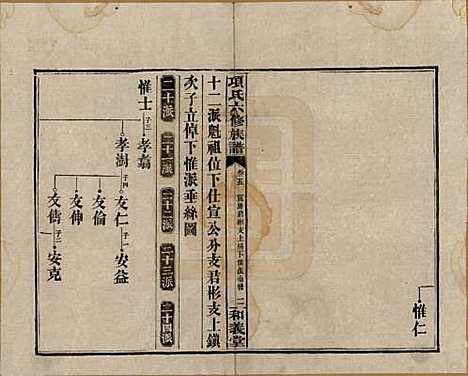 惟仁
項氏六修族譜
卷五
二
和義堂
十二派魁祖位下仕宣公分支君彬支上鎮
次子立倬下惟派垂絲圖
二十派
二十一派
二十二派
二十三派
二十四派
惟士
子二
孝嘉
孝澍
子四
友仁
子一
安益
友倫
友伸
友儔
子二
安克